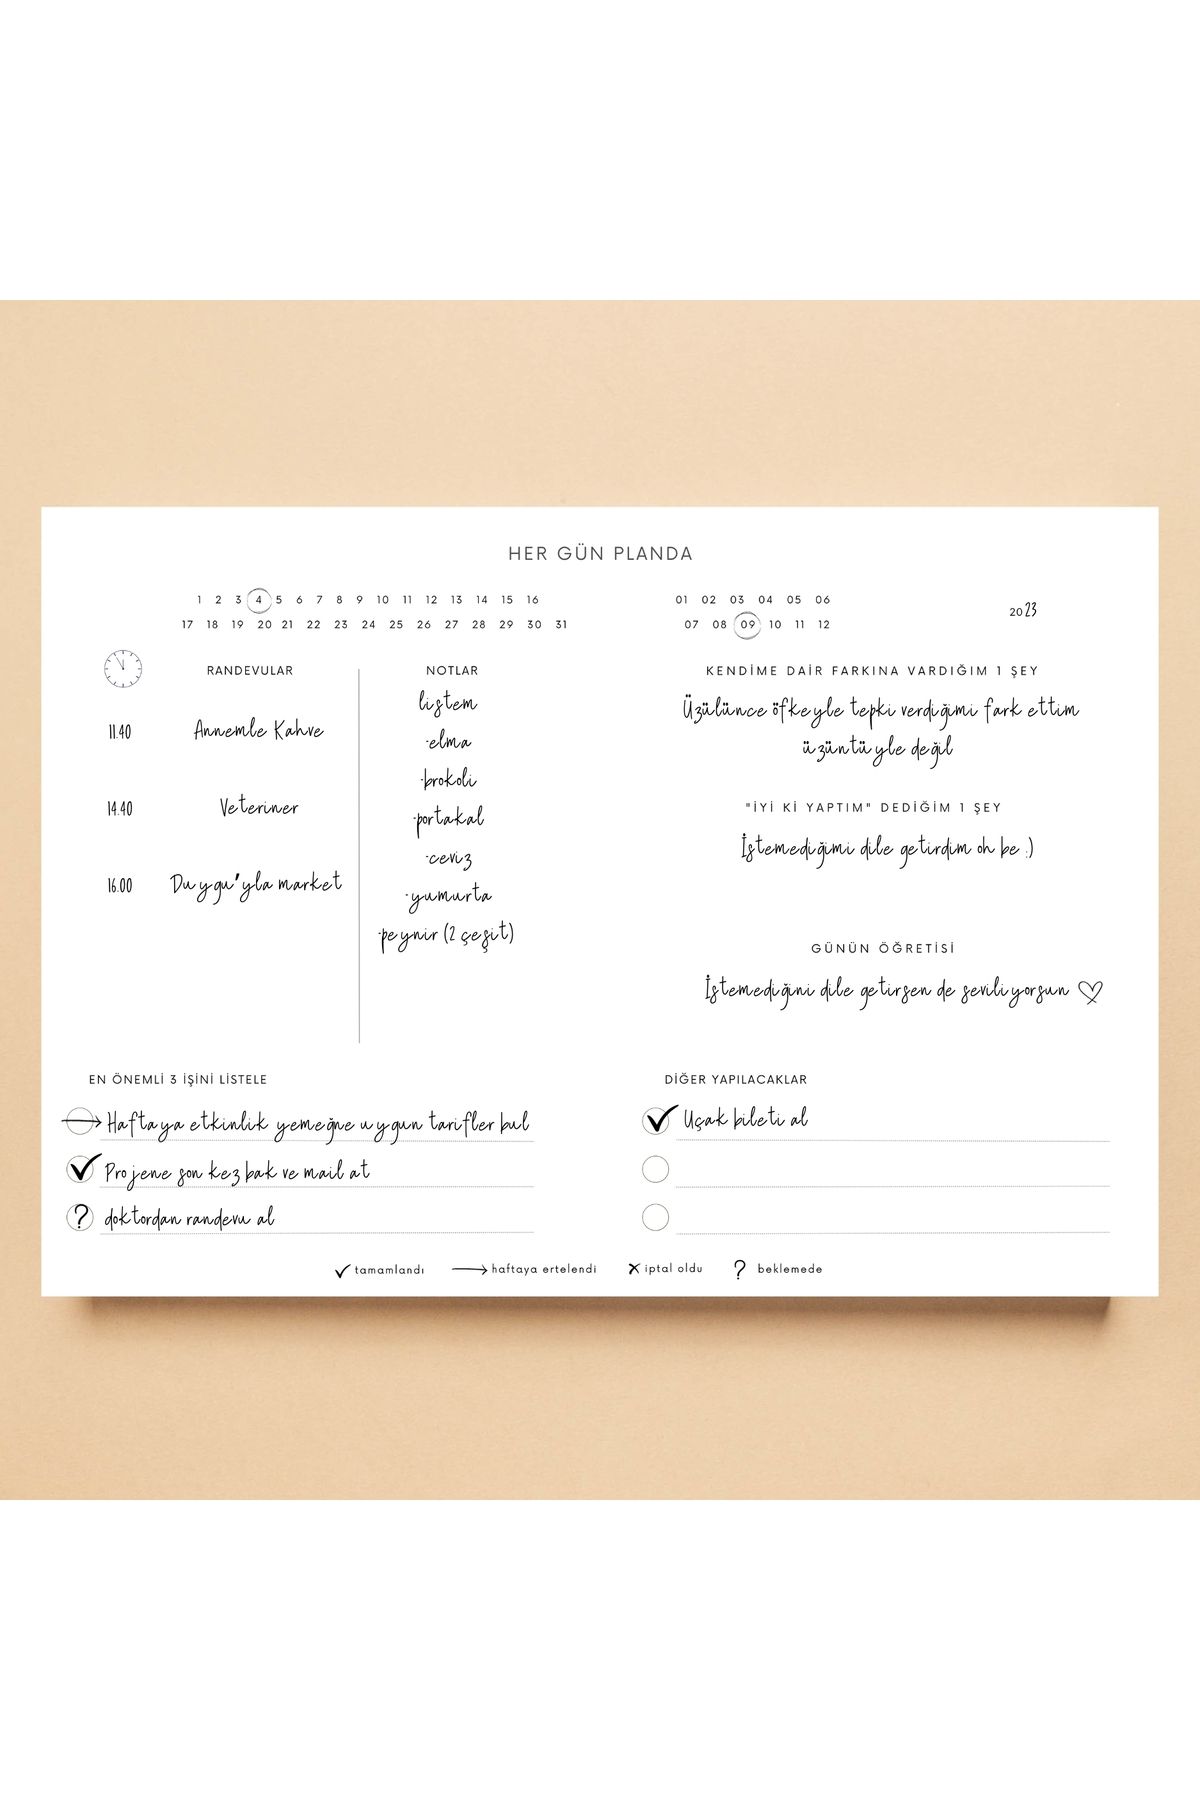 HER GÜN PLANDA
1 2 3 4 5 6 7 8 9 10 11 12 13 14 15 16
17 18 19 20 21 22 23 24 25 26 27 28 29 30 31
01 02 03 04 05 06
07 08 09 10 11 12
2023
RANDEVULAR
11.40 Annemle Kahve
14.40 Veteriner
16.00 Duygu'yla market
NOTLAR
listem
-elma
-brokoli
-portakal
-ceviz
-yumurta
-peynir (2 çeşit)
KENDİME DAİR FARKINA VARDIĞIM 1 ŞEY
Üzülünce öfkeyle tepki verdiğimi fark ettim
üzüntüyle değil
"İYİ Kİ YAPTIM" DEDİĞİM 1 ŞEY
İstemediğimi dile getirdim oh be :)
GÜNÜN ÖĞRETİSİ
İstemediğini dile getirsen de seviliyorsun
EN ÖNEMLİ 3 İŞİNİ LİSTELE
Haftaya etkinlik yemeğne uygun tarifler bul
Projene son kez bak ve mail at
? doktordan randevu al
DİĞER YAPILACAKLAR
Uçak bileti al
tamamlandı haftaya ertelendi iptal oldu ? beklemede